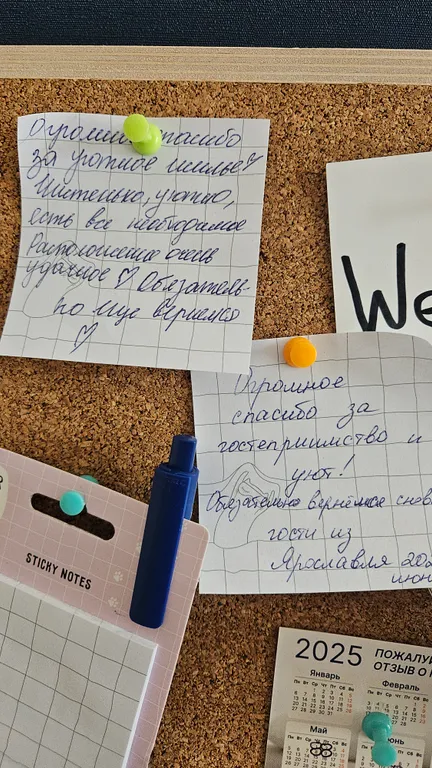 Огромное спасибо
за уютное жилье♡
Чистенько, уютно,
есть все необходимое
Расположение очень
удачное ♡ Обязатель-
но еще вернемся
♡
We
Огромное
спасибо за
гостеприимство и
уют!
Обязательно вернёмся снова
гости из
Ярославля
июн
STICKY NOTES
2025
ПОЖАЛУЙ
ОТЗЫВ О
Январь
Февраль
Пн Вт Ср Чт Пт Сб Вс
Май